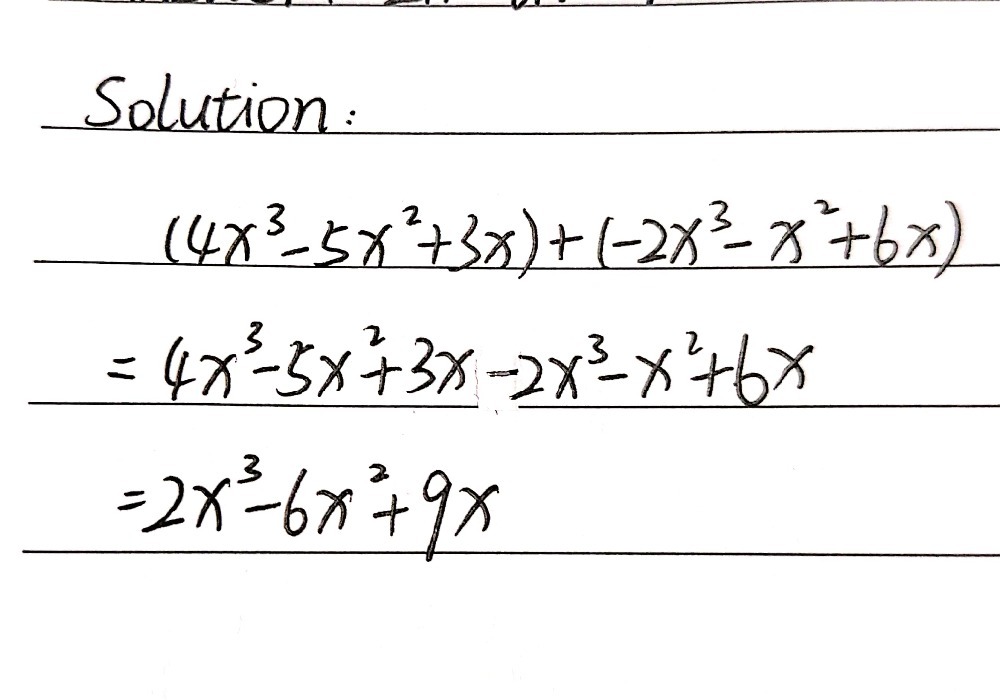 Solution:
(4x³-5x²+3x)+(-2x³-x²+6x)
=4x³-5x²+3x-2x³-x²+6x
=2x³-6x²+9x